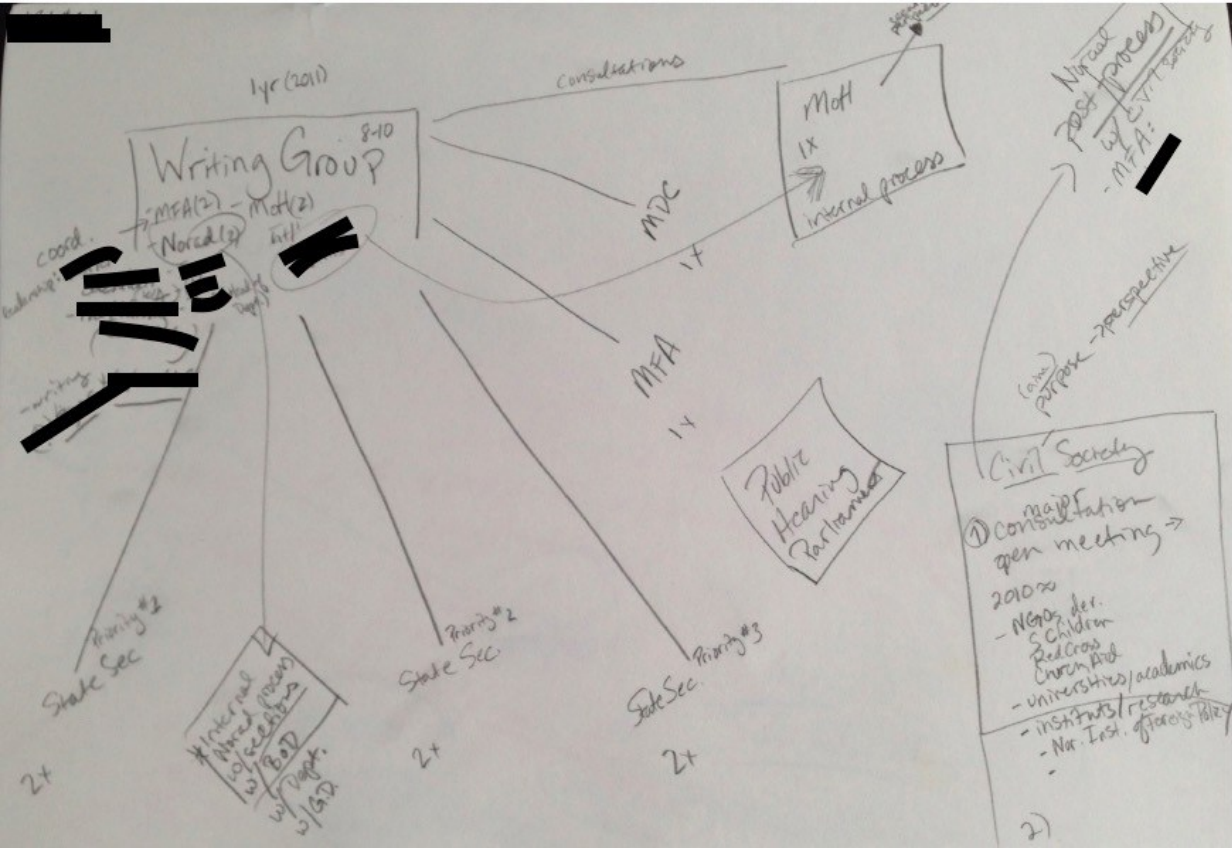 1yr (2011)
consultations
Writing Group
8-10
-MFA(2) - MoH(2)
-Norad(2)
coord.
- writing
MoH
1x
internal process
MDC
1x
MFA
1x
Public
Hearing
Parliament
Norad
post process
w/ civil society
- MFA:
(aim)
purpose → perspective
Civil Society
major
① consultation
open meeting →
2010
- NGOs, der.
S Children
Red Cross
Church Aid
- universities/academics
- instituts/research
- Nor. Inst. of Foreign Policy
-
2)
Priority #1
State Sec
2x
# Internal
Norad process
w/ sections
w/ BOD
w/ Dept.
w/ G.D.
Priority #2
State Sec.
2x
Priority #3
State Sec.
2x